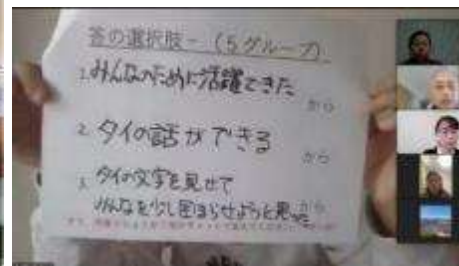 答の選択肢－（5グループ）
1. みんなのために活躍できた から
2. タイの話ができる から
3. タイの文字を見せて
みんなを少し困らせようと思った から